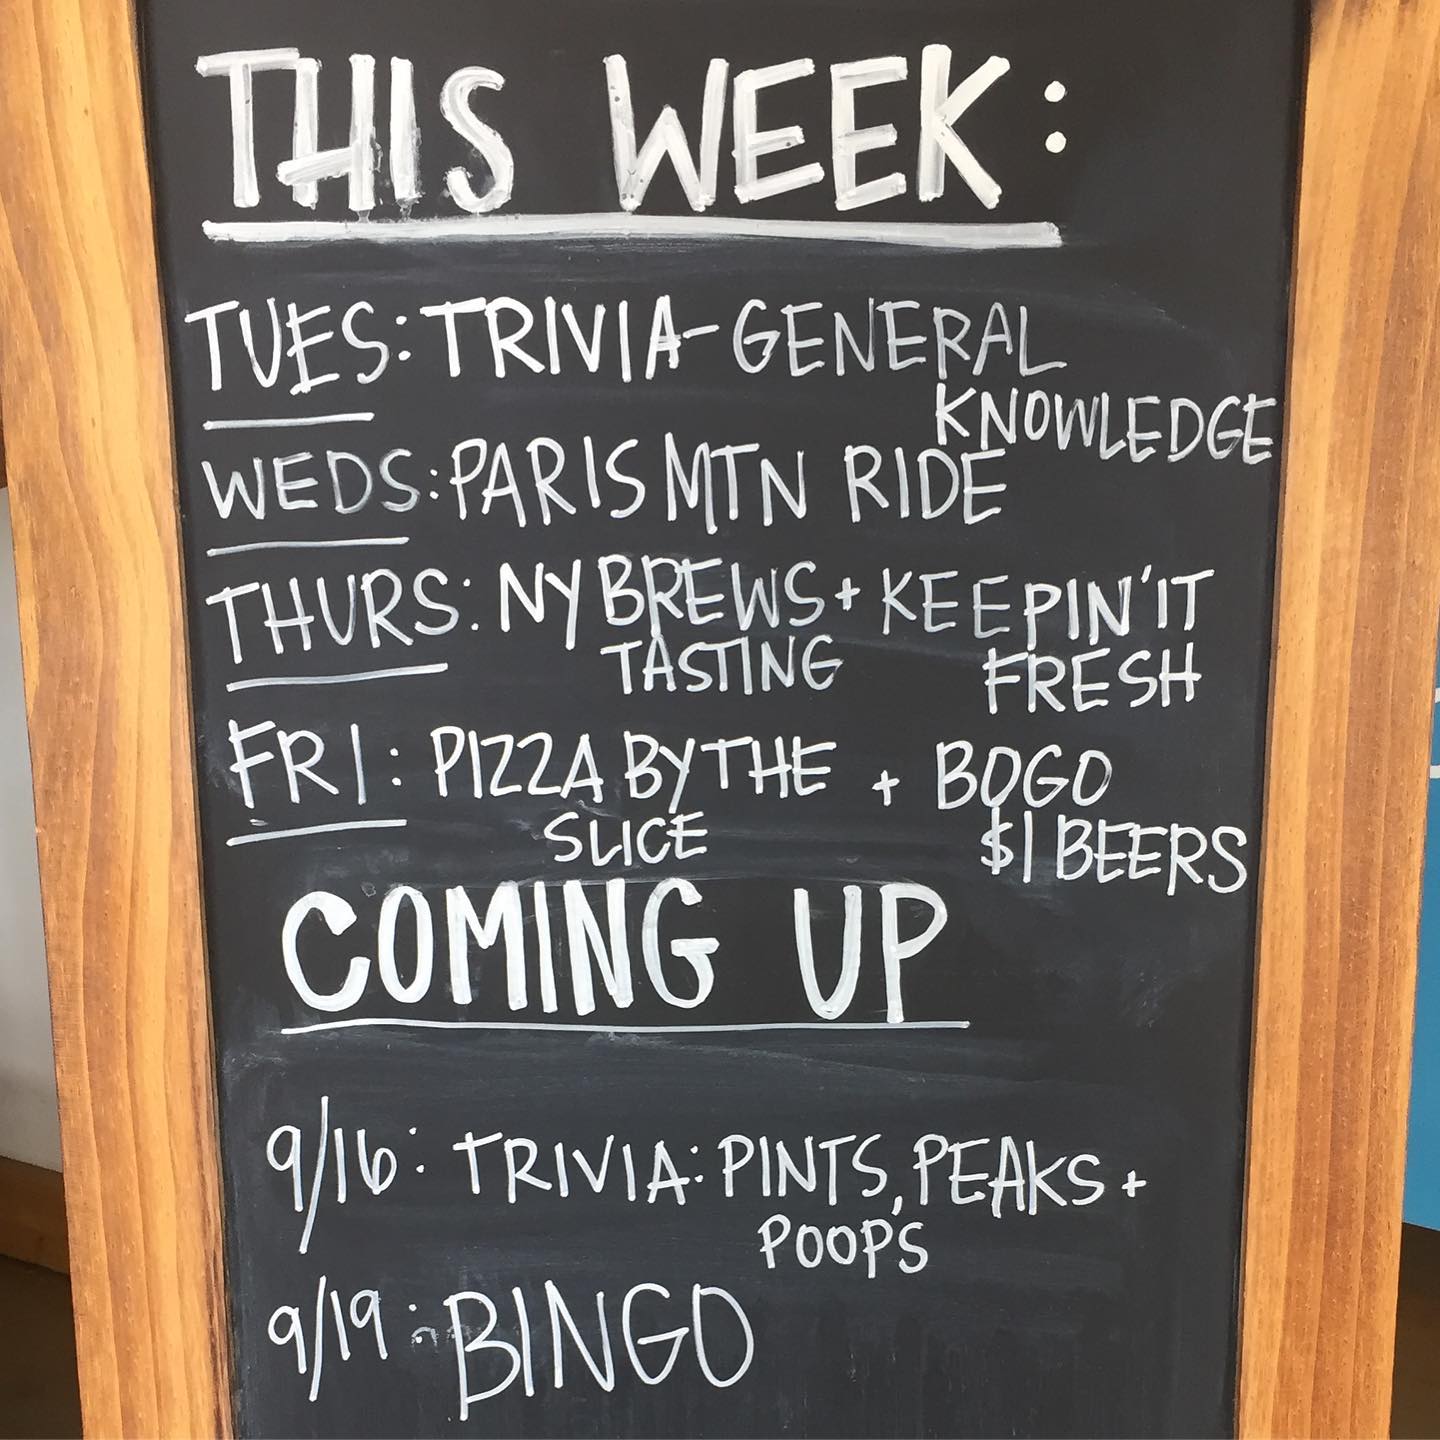 THIS WEEK:
TUES: TRIVIA- GENERAL
KNOWLEDGE
WEDS: PARIS MTN RIDE
THURS: NY BREWS + KEEPIN' IT
TASTING FRESH
FRI: PIZZA BY THE + BOGO
SLICE $1 BEERS
COMING UP
9/16: TRIVIA: PINTS, PEAKS +
POOPS
9/19: BINGO